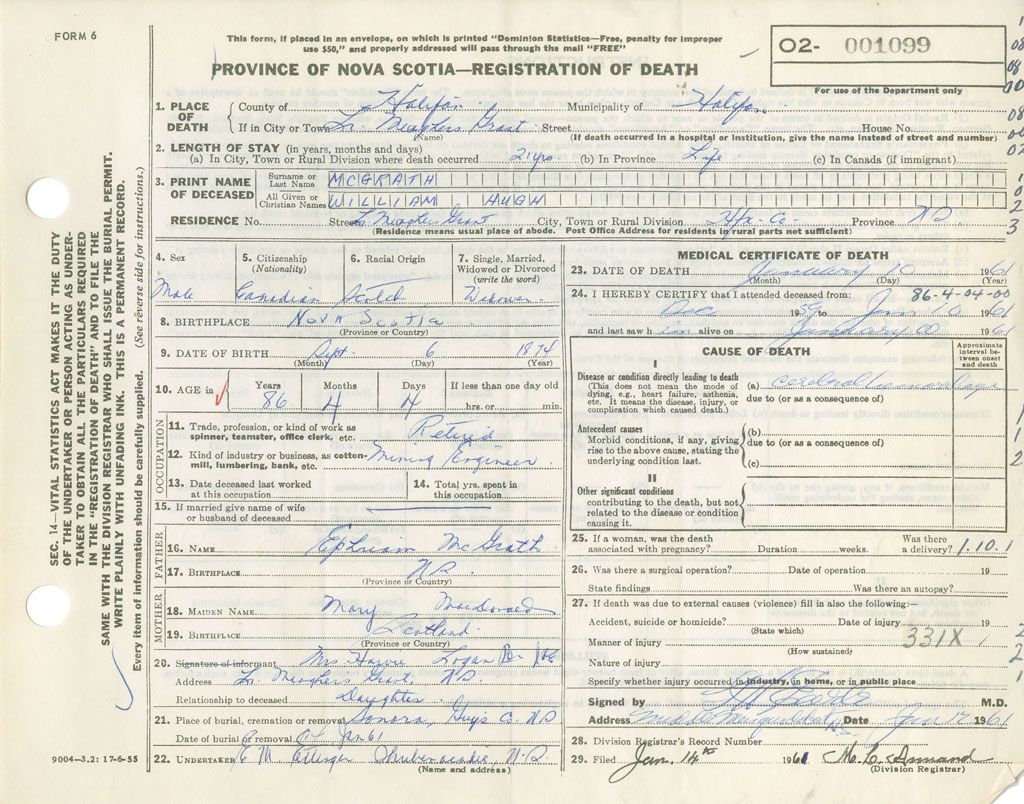 FORM 6
This form, if placed in an envelope, on which is printed "Dominion Statistics—Free, penalty for improper
use $50," and properly addressed will pass through the mail "FREE"
02- 001099
For use of the Department only
PROVINCE OF NOVA SCOTIA—REGISTRATION OF DEATH
1. PLACE OF DEATH { County of Halifax Municipality of Halifax
If in City or Town Lr. Meaghers Grant Street House No.
(Name) (If death occurred in a hospital or institution, give the name instead of street and number)
2. LENGTH OF STAY (in years, months and days)
(a) In City, Town or Rural Division where death occurred 21 yrs (b) In Province Life (c) In Canada (if immigrant)
3. PRINT NAME OF DECEASED { Surname or Last Name MCGRATH
All Given or Christian Names WILLIAM HUGH
RESIDENCE No. Street L. Meaghers Grant City, Town or Rural Division Hfx. Co. Province NS
(Residence means usual place of abode. Post Office Address for residents in rural parts not sufficient)
4. Sex Male
5. Citizenship (Nationality) Canadian
6. Racial Origin Scotch
7. Single, Married, Widowed or Divorced (write the word) Widower
8. BIRTHPLACE NOVA SCOTIA
(Province or Country)
9. DATE OF BIRTH Sept. 6 1874
(Month) (Day) (Year)
10. AGE in Years 86 Months 4 Days 4 If less than one day old
hrs. or min.
OCCUPATION
11. Trade, profession, or kind of work as spinner, teamster, office clerk, etc. Retired
12. Kind of industry or business, as cotton-mill, lumbering, bank, etc. Mining Engineer
13. Date deceased last worked at this occupation
14. Total yrs. spent in this occupation
15. If married give name of wife or husband of deceased
FATHER
16. NAME Ephriam McGrath
17. BIRTHPLACE NS
(Province or Country)
MOTHER
18. MAIDEN NAME Mary MacDonald
19. BIRTHPLACE Scotland
(Province or Country)
20. Signature of informant Mrs Harvie Logan Per
Address Lr. Meaghers Grant, NS.
Relationship to deceased Daughter
21. Place of burial, cremation or removal Sonora, Guys Co. NS
Date of burial or removal Jan 61
22. UNDERTAKER E M Ettinger Shubenacadie, N.S.
(Name and address)
MEDICAL CERTIFICATE OF DEATH
23. DATE OF DEATH January 10 1961
(Month) (Day) (Year)
24. I HEREBY CERTIFY that I attended deceased from: 86-4-04-00
Dec 1959 to Jan 10 1961
and last saw him alive on January 10 1961
CAUSE OF DEATH
Approximate interval between onset and death
I
Disease or condition directly leading to death (a) cerebral hemorrhage
(This does not mean the mode of dying, e.g., heart failure, asthenia, etc. It means the disease, injury, or complication which caused death.) due to (or as a consequence of)
Antecedent causes (b)
Morbid conditions, if any, giving rise to the above cause, stating the underlying condition last. due to (or as a consequence of)
(c)
II
Other significant conditions
contributing to the death, but not related to the disease or condition causing it.
25. If a woman, was the death associated with pregnancy? Duration weeks. Was there a delivery? 1.10.1
26. Was there a surgical operation? Date of operation 19
State findings Was there an autopsy?
27. If death was due to external causes (violence) fill in also the following:—
Accident, suicide or homicide? Date of injury 19
(State which)
Manner of injury 331X
(How sustained)
Nature of injury
Specify whether injury occurred in industry, in home, or in public place
Signed by M.D.
Address Middle Musquodoboit N.S. Date Jan 12 1961
28. Division Registrar's Record Number
29. Filed Jan. 14th 1961
(Division Registrar)
SEC. 14—VITAL STATISTICS ACT MAKES IT THE DUTY
OF THE UNDERTAKER OR PERSON ACTING AS UNDER-
TAKER TO OBTAIN ALL THE PARTICULARS REQUIRED
IN THE "REGISTRATION OF DEATH" AND TO FILE THE
SAME WITH THE DIVISION REGISTRAR WHO SHALL ISSUE THE BURIAL PERMIT.
WRITE PLAINLY WITH UNFADING INK. THIS IS A PERMANENT RECORD.
Every item of information should be carefully supplied. (See reverse side for instructions.)
9004-3.2: 17-6-55